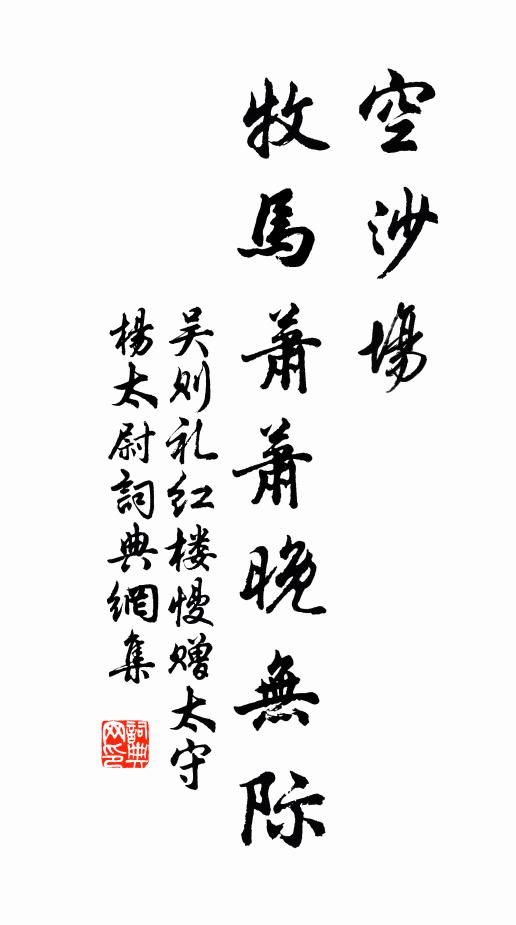 空沙場
牧馬蕭蕭晚無际
吴则礼红楼慢赠太守
楊太尉詞典網集
詞典网印